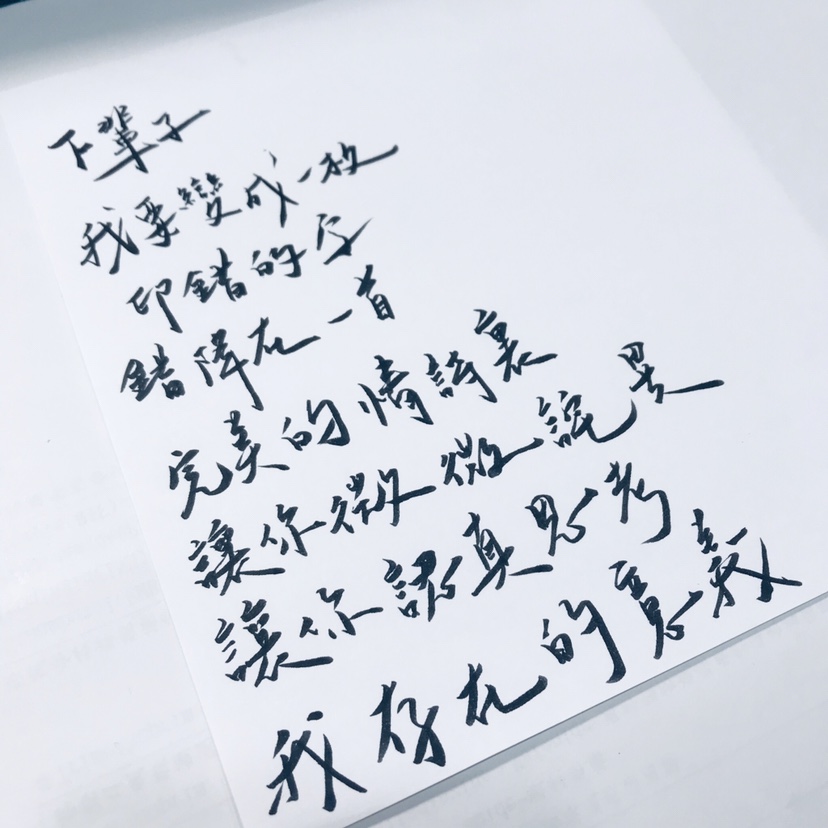 下輩子
我要變成一枚
印錯的字
錯降在一首
完美的情詩裏
讓你微微詫異
讓你認真思考
我存在的意義